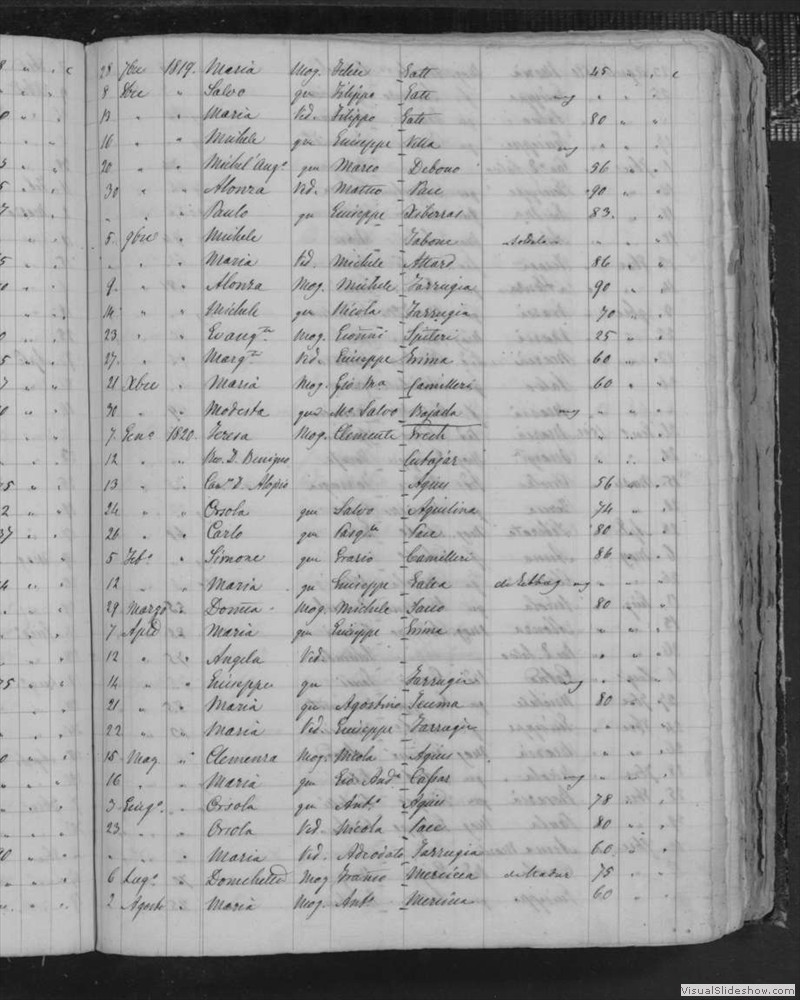 28 7bre 1819. Maria Mog. Felice Gatt 45 " "
8 8bre " Salvo qu Filippo Gatt " "
13 " " Maria Vid. Filippo Gatt 80 " "
16 " " Michele qu Giuseppe Vella
20 " " Michel'Ango qu Marco Debono 56 " "
30 " " Alonza Vid. Matteo Pace 90 " "
" " Paulo qu Giuseppe Xiberras 83.
5. 9bre " Michele Tabone
" " Maria Vid. Michele Attard 86 " "
9. " " Alonza Mog. Michele Farrugia 90 " "
14 " " Michele qu Nicola Farrugia 70 " "
23 " " Evangta Mog. Gionni Spiteri 25 " "
27. " " Margta Vid. Giuseppe Grima 60 " "
21 Xbre " Maria Mog. Gio Ma Camilleri 60 " "
30 " " Modesta Mo Salvo Bajada
7. Geno 1820. Teresa Mog. Clemente Grech " "
12 " " Rev. D. Benigno Cutajar " "
13 " " D. Aloysio Agius 56 " "
24 " " Orsola qu Salvo Agiutina 74 " "
26 " " Carlo qu Pace 80 " "
5 Febo " Simone qu Grazio Camilleri 86 " "
12 " " Maria qu Giuseppe Galea de Zebbug
29 Marzo " Mog. Michele 80 " "
7 Aple " Maria qu Giuseppe Grima " "
12 " " Angela Vid. " "
14 " " Giuseppe qu Farrugia
21 " " Maria qu Agostino Teuma 80 " "
22 " " Maria Vid. Giuseppe Farrugia " "
15 Mag. " Clemenza Mog. Nicola Agius " "
16 " " Maria qu Gio Anda Cassar
3 Giugo. " Orsola qu Anto Agius 78 " "
23 " " Orsola Vid. Nicola Pace 80 " "
" " Maria Vid. Adeodato Farrugia 60 " "
6 Lugo. " Mog Franco Mercieca de Nadur 75 " "
2 Agosto " Maria Mog. Anto Mercieca 60 " "
VisualSlideshow.com